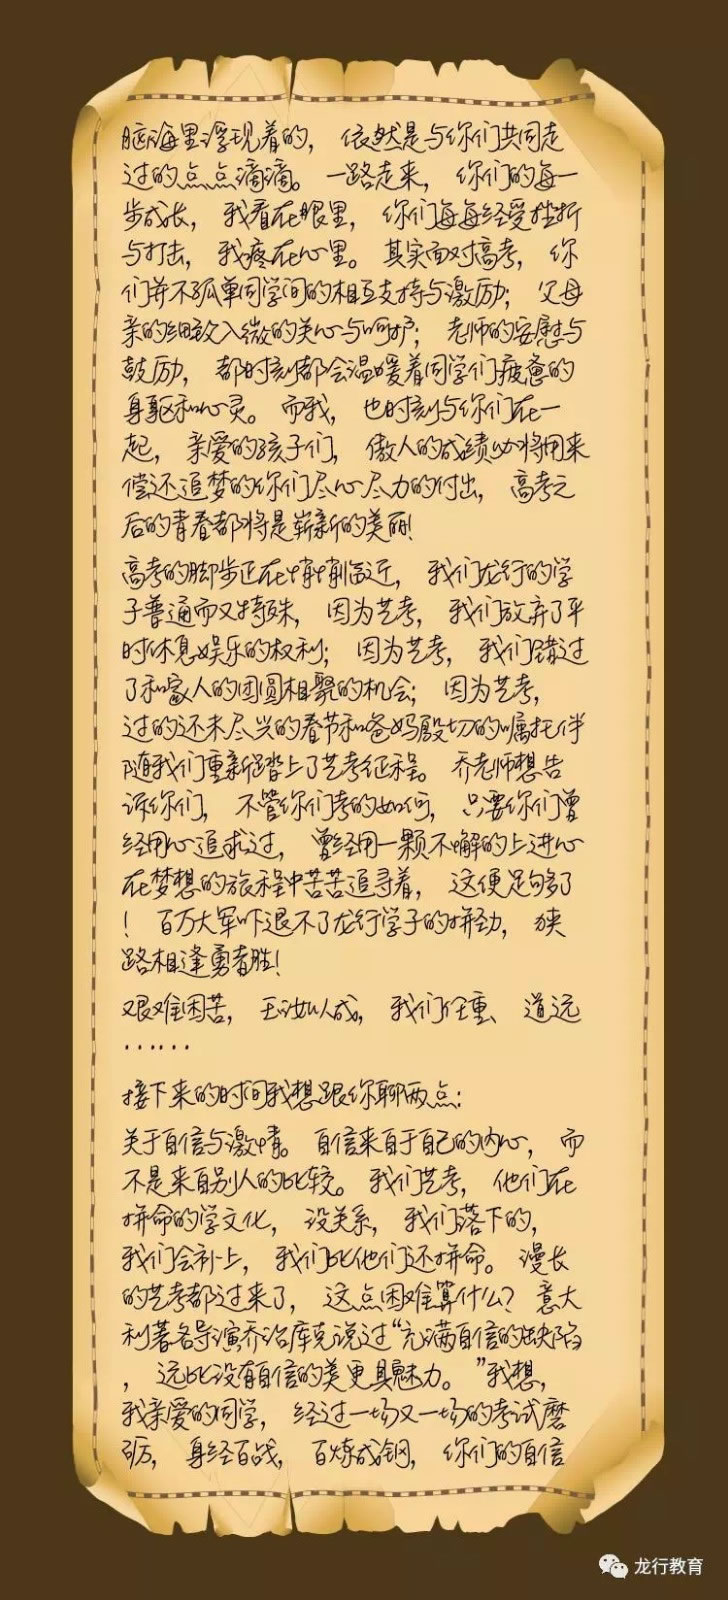 脑海里浮现着的，依然是与你们共同走
过的点点滴滴。一路走来，你们的每一
步成长，我看在眼里，你们每每经受挫折
与打击，我疼在心里。其实面对高考，你
们并不孤单同学间的相互支持与激励；父母
亲的细致入微的关心与呵护；老师的安慰与
鼓励，都时刻都会温暖着同学们疲惫的
身躯和心灵。而我，也时刻与你们在一
起，亲爱的孩子们，傲人的成绩必将用来
偿还追梦的你们尽心尽力的付出，高考之
后的青春都将是崭新的美丽！
高考的脚步正在悄悄临近，我们龙行的学
子普通而又特殊，因为艺考，我们放弃了平
时休息娱乐的权利；因为艺考，我们错过
了和家人的团圆相聚的机会；因为艺考，
过的还未尽兴的春节和爸妈殷切的嘱托伴
随我们重新踏上了艺考征程。乔老师想告
诉你们，不管你们考的如何，只要你们曾
经用心追求过，曾经用一颗不懈的上进心
在梦想的旅程中苦苦追寻着，这便足够了
！百万大军吓退不了龙行学子的拼劲，狭
路相逢勇者胜！
艰难困苦，玉汝以成，我们任重、道远
……
接下来的时间我想跟你聊两点：
关于自信与激情。自信来自于自己的内心，而
不是来自别人的比较。我们艺考，他们在
拼命的学文化，没关系，我们落下的，
我们会补上，我们比他们还拼命。漫长
的艺考都过来了，这点困难算什么？意大
利著名导演乔治库克说过“充满自信的缺陷
，远比没有自信的美更具魅力。”我想，
我亲爱的同学，经过一场又一场的考试磨
砺，身经百战，百炼成钢，你们的自信
龙行教育